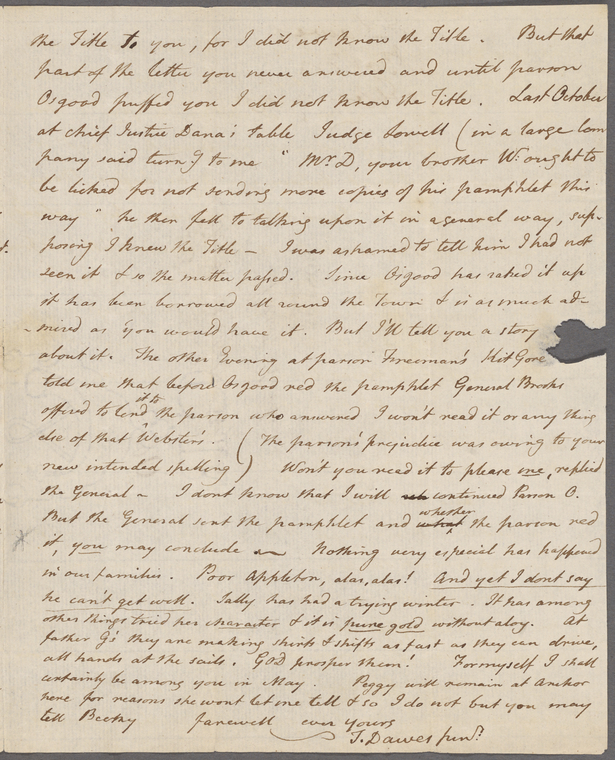 the Title to you, for I did not know the Title. But that
part of the letter you never answered and until parson
Osgood puffed you I did not know the Title. Last October
at chief Justice Dana's table Judge Lowell (in a large com
pany said turng to me " Mr D, your brother W. ought to
be licked for not sending more copies of his pamphlet this
way " he then fell to talking upon it in a general way, sup-
posing I knew the Title – I was ashamed to tell him I had not
seen it & so the matter passed. Since Osgood has raked it up
it has been borrowed all round the Town & is as much ad-
-mired as you would have it. But I'll tell you a story
about it. The other Evening at parson Freeman's Kit Gore
told me that before Osgood red the pamphlet General Brooks
offered to lend it to the parson who answered I won't read it or any thing
else of that Webster's. (The parson's prejudice was owing to your
new intended spelling) Won't you reed it to please me, replied
the General – I dont know that I will continued Parson O.
But the General sent the pamphlet and whether the parson red
it, you may conclude – Nothing very especial has happened
in our families. Poor Appleton, alas, alas! And yet I dont say
he can't get well. Sally has had a trying winter. It has among
other things tried her character & it is pure gold without aloy. At
father G's they are making shirts & shifts as fast as they can drive,
all hands at the sails. God prosper them! For myself I shall
certainly be among you in May. Peggy will remain at anchor
here for reasons she wont let me tell & so I do not but you may
tell Becky farewell ever yours
T. Dawes junr.